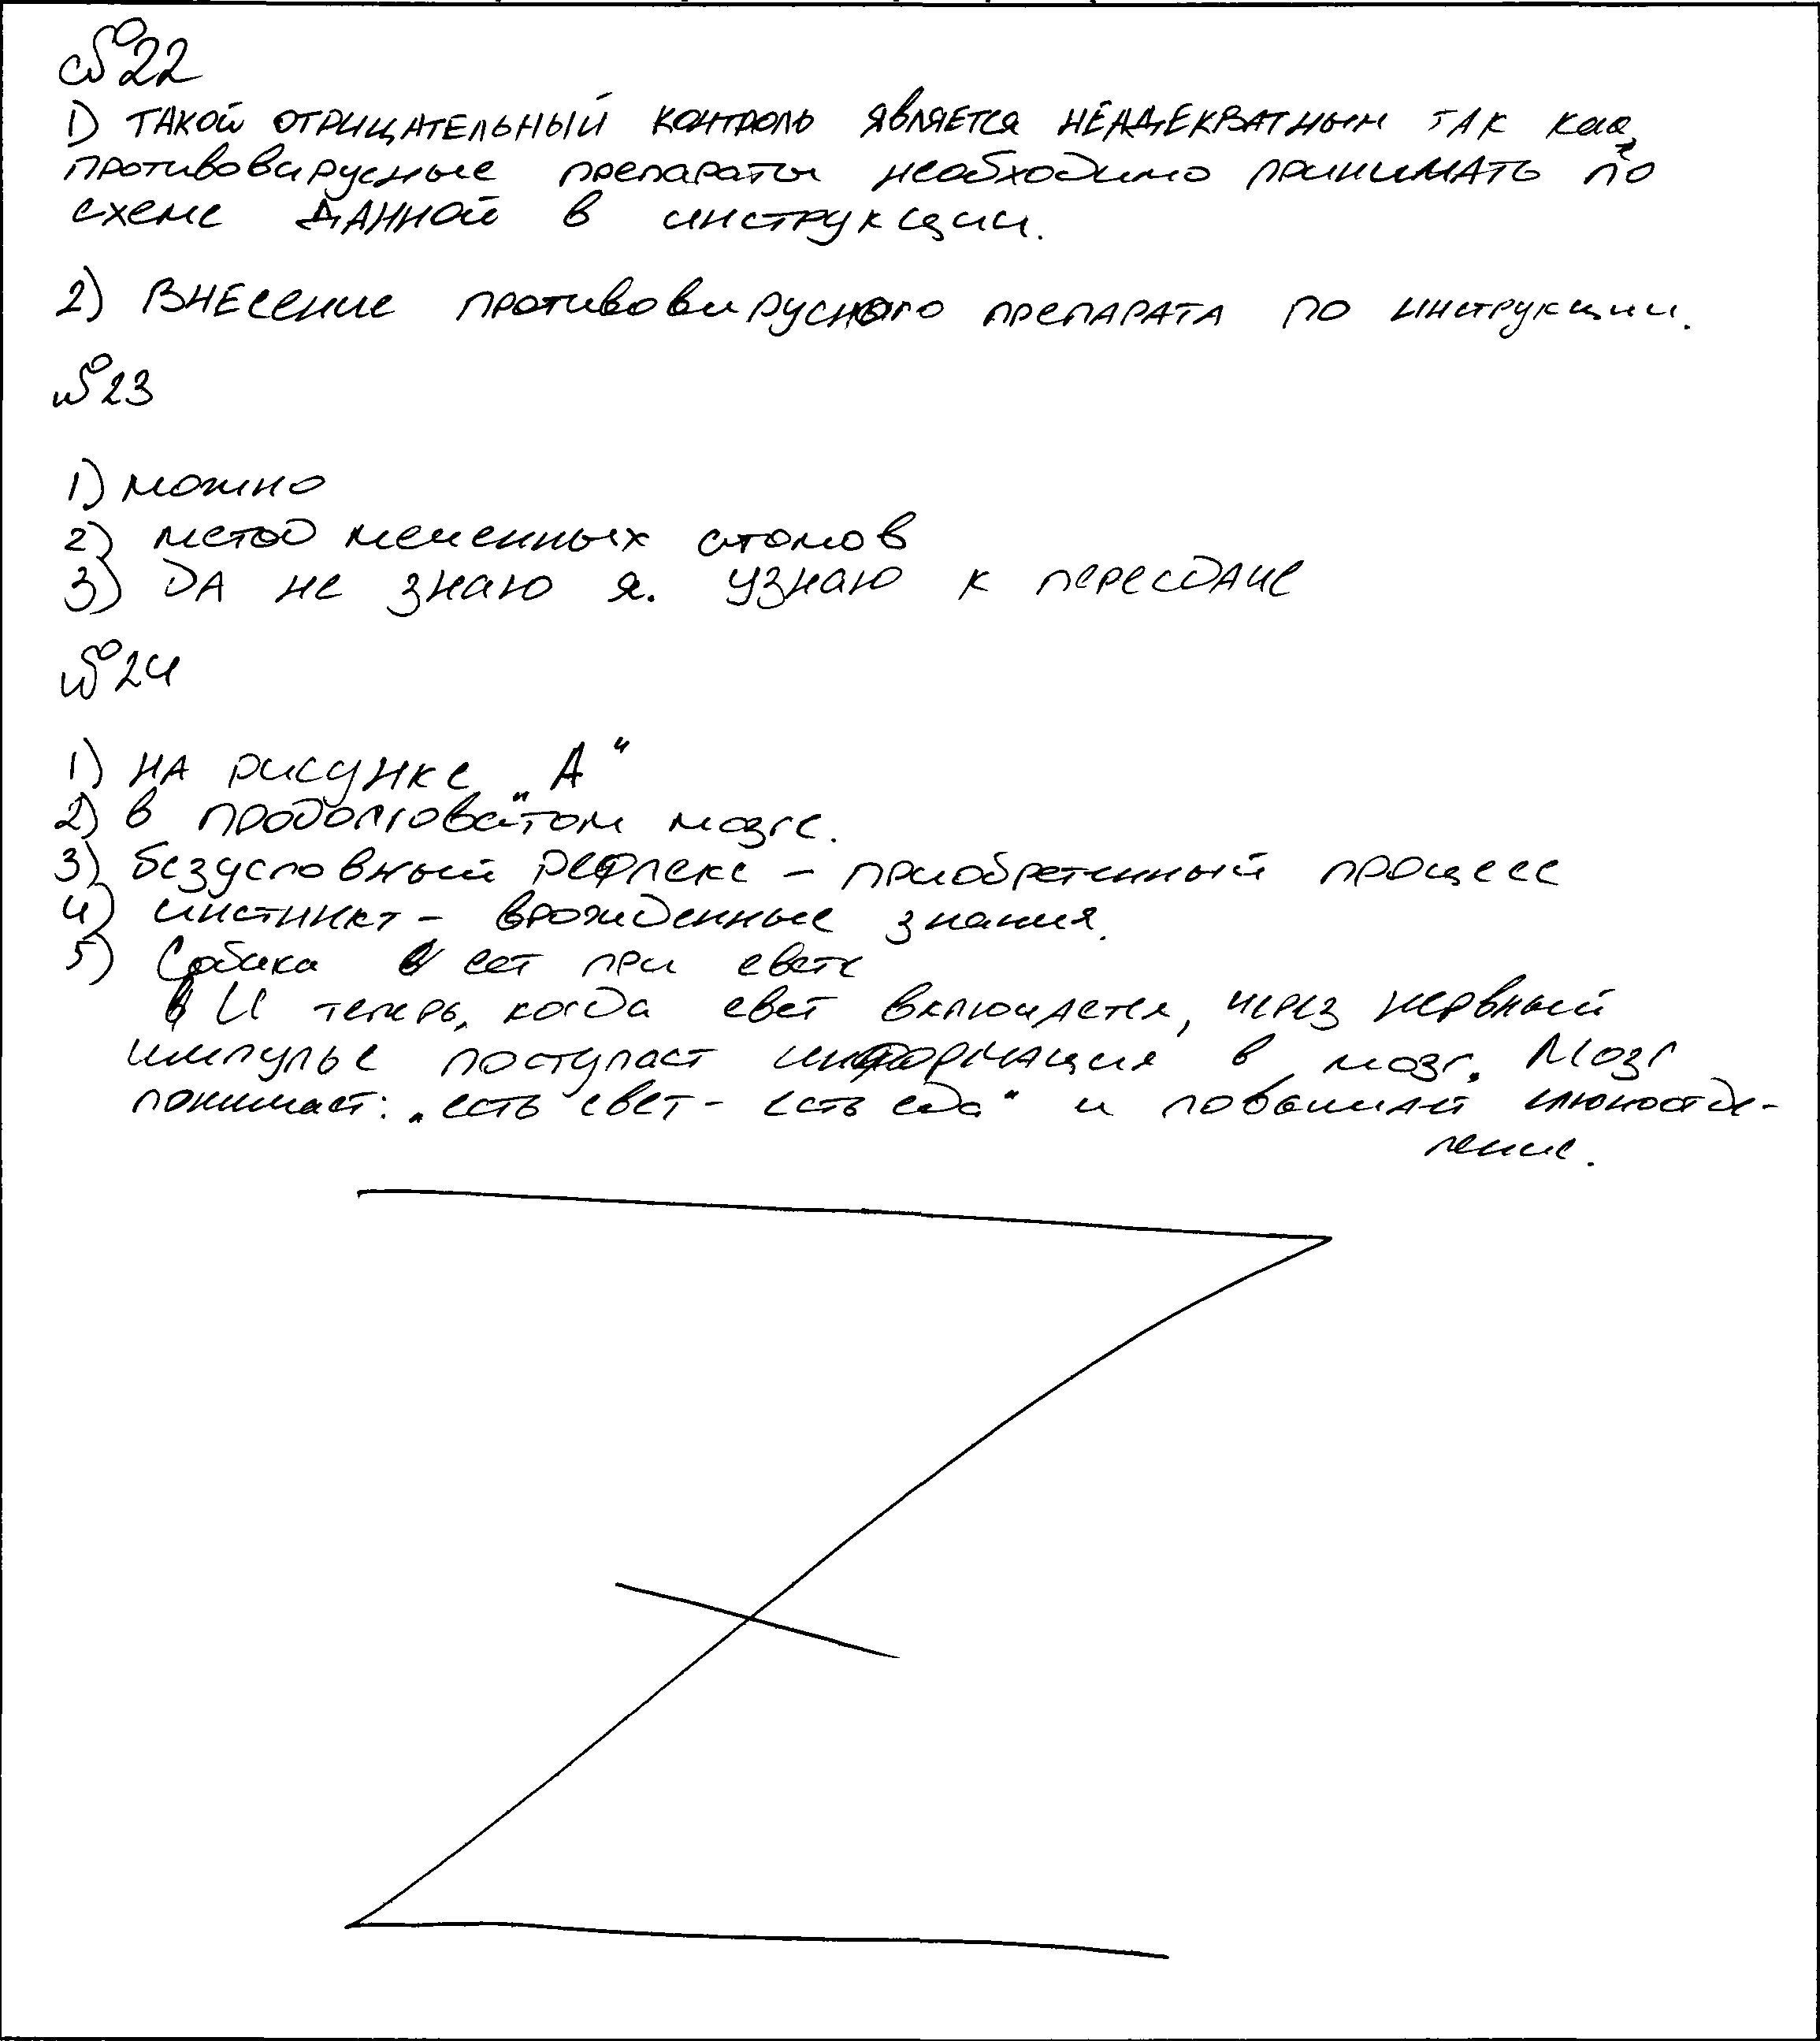 №22
1) ТАКОЙ ОТРИЦАТЕЛЬНЫЙ КОНТРОЛЬ ЯВЛЯЕТСЯ НЕАДЕКВАТНЫМ ТАК как
противовирусные препараты необходимо принимать по
схеме ДАННОЙ в инструкции.
2) ВНЕсение противовирусного препарата по инструкции.
№23
1) можно
2) метод меченных атомов
3) ДА не знаю я. Узнаю к пересдаче
№24
1) НА рисунке „А“
2) в продолговатом мозге.
3) безусловный рефлекс – приобретенный процесс
4) инстинкт – врожденные знания.
5) Собака ест при свете
И теперь, когда свет включается, через нервный
импульс поступает информация в мозг. Мозг
понимает: „есть свет – есть еда“ и повышает слюноотде-
ление.